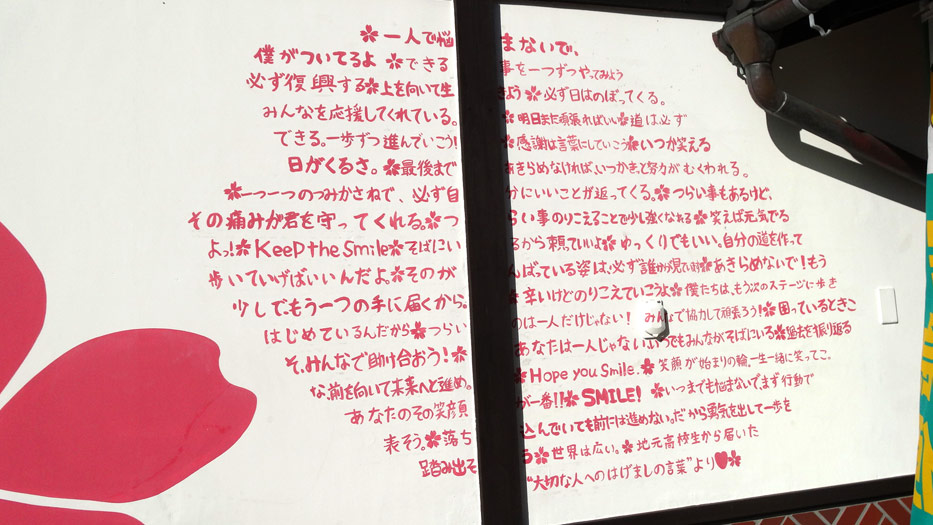 ✿一人で悩まないで、
僕がついてるよ ✿できる事を一つずつやってみよう
必ず復興する✿上を向いて生きよう✿必ず日はのぼってくる。
みんなを応援してくれている。✿明日また頑張ればいい✿道は必ず
できる。一歩ずつ進んでいこう!✿感謝は言葉にしていこう✿いつか笑える
日がくるさ。✿最後まであきらめなければ、いつかきっと努力がむくわれる。
✿一つ一つのつみかさねで、必ず自分にいいことが返ってくる。✿つらい事もあるけど、
その痛みが君を守ってくれる。✿つらい事のりこえることで少し強くなれる✿笑えば元気でる
よっ!✿KeeP the Smile✿そばにいるから頼っていいよ✿ゆっくりでもいい。自分の道を作って
歩いていけばいいんだよ✿そのがんばっている姿は、必ず誰かが見ている✿あきらめないで!もう
少しでもう一つの手に届くから。✿辛いけどのりこえていこうよ✿僕たちは、もう次のステージに歩き
はじめているんだから✿つらいのは一人だけじゃない!みんなで協力して頑張ろう!✿困っているときこ
そ、みんなで助け合おう!✿あなたは一人じゃない いつでもみんながそばにいる✿過去を振り返る
な、前を向いて未来へと進め。✿Hope you Smile.✿笑顔が始まりの輪、一生一緒に笑ってこ。
あなたのその笑顔が一番!!✿SMILE!✿いつまでも悩まないで、まず行動で
表そう。✿落ち込んでいても前には進めない。だから勇気を出して一歩を
踏み出そう✿世界は広い。✿地元高校生から届いた
“大切な人へのはげましの言葉”より♥✿